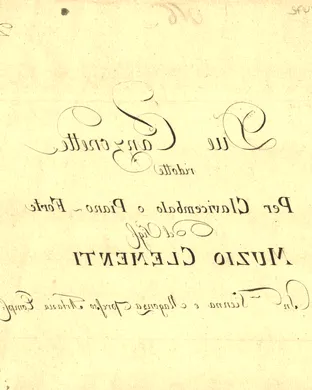 Due Canzonette
ridotte
Per Clavicembalo o Piano-Forte
Dal Sigr.
MUZIO CLEMENTI
In Vienna e Magonza presso Artaria Comp.